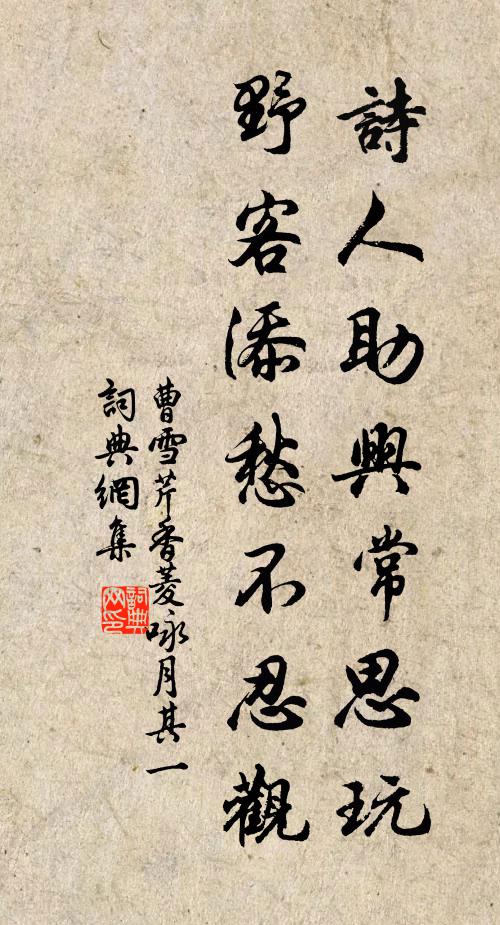 詩人助興常思玩
野客添愁不忍觀
曹雪芹香菱咏月其一
詞典網集
詞典网印